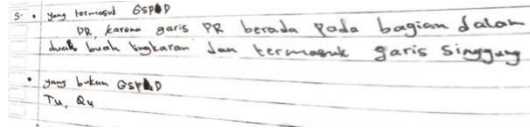 5. • yang termasuk GSPD
PR, karena garis PR berada pada bagian dalam
duah buah lingkaran dan termasuk garis singgung
• yang bukan GSPD
Tu, Qu